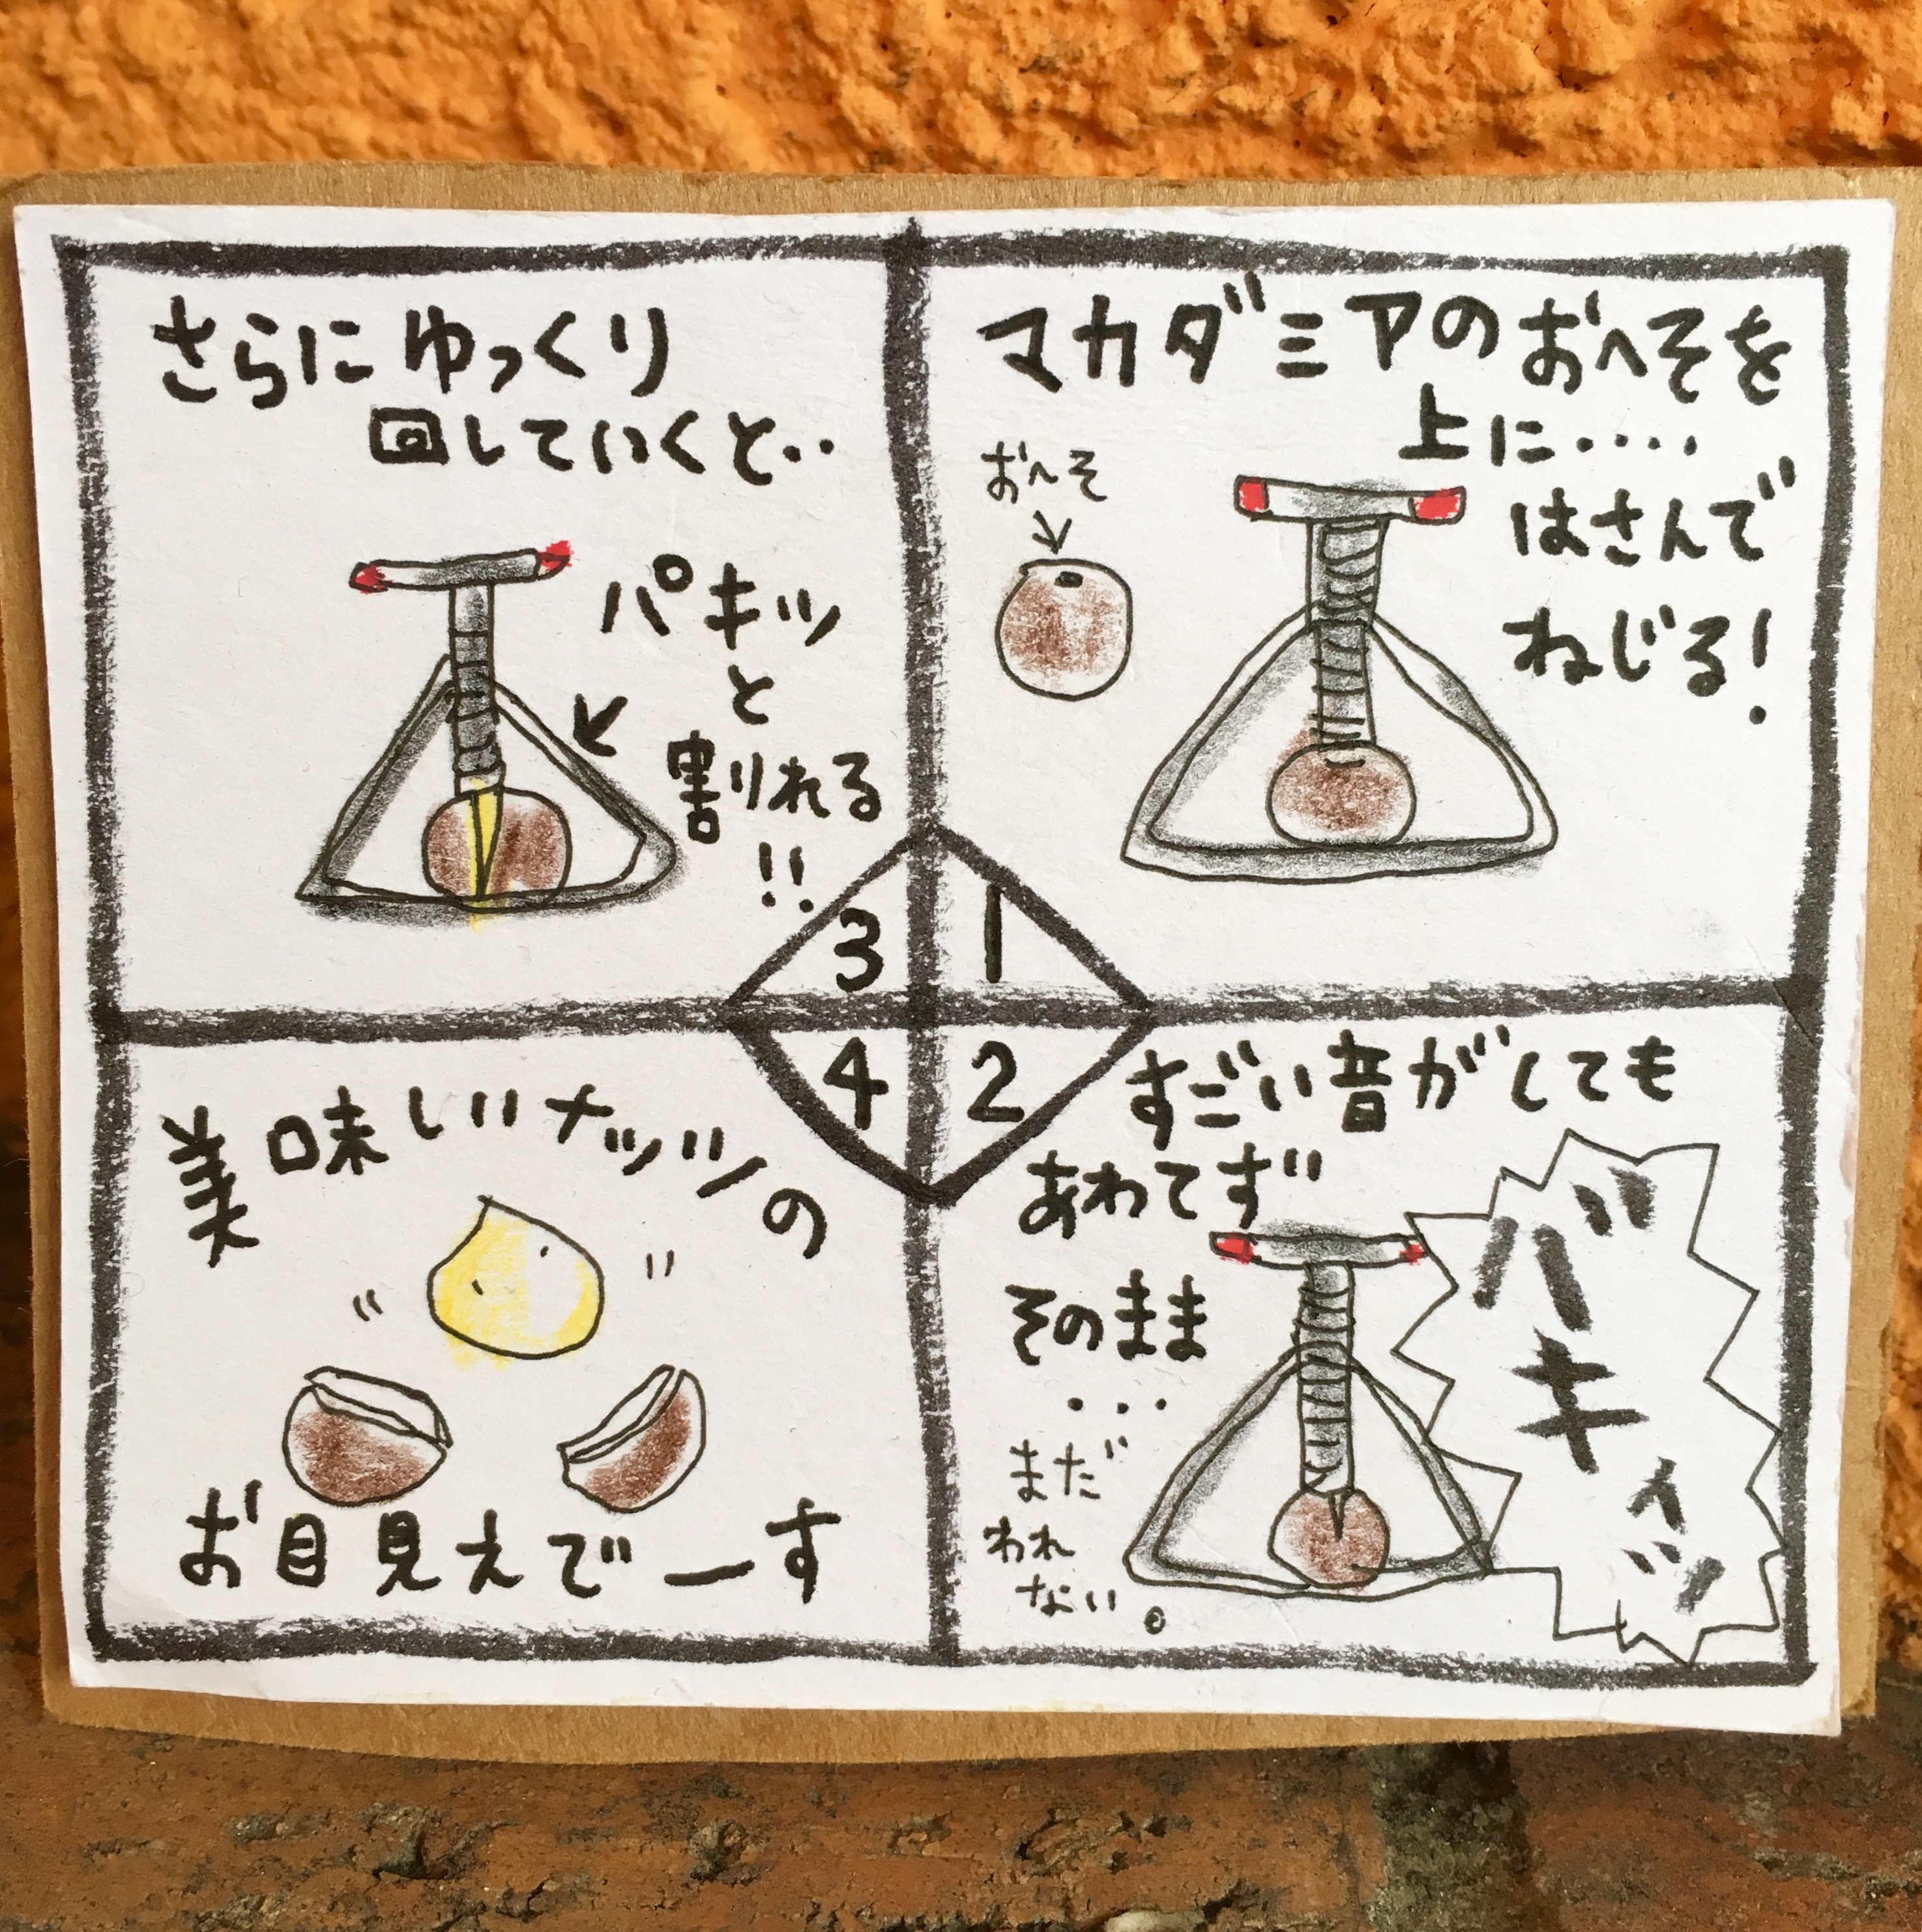 マカダミアのおへそを
上に‥‥
はさんで
ねじる!
おへそ
1
すごい音がしても
あわてず
そのまま
...
まだ
われ
ない。
バキィッ
2
さらにゆっくり
回していくと‥
パキッ
と
割れる
!!
3
美味しいナッツの
お目見えでーす
4